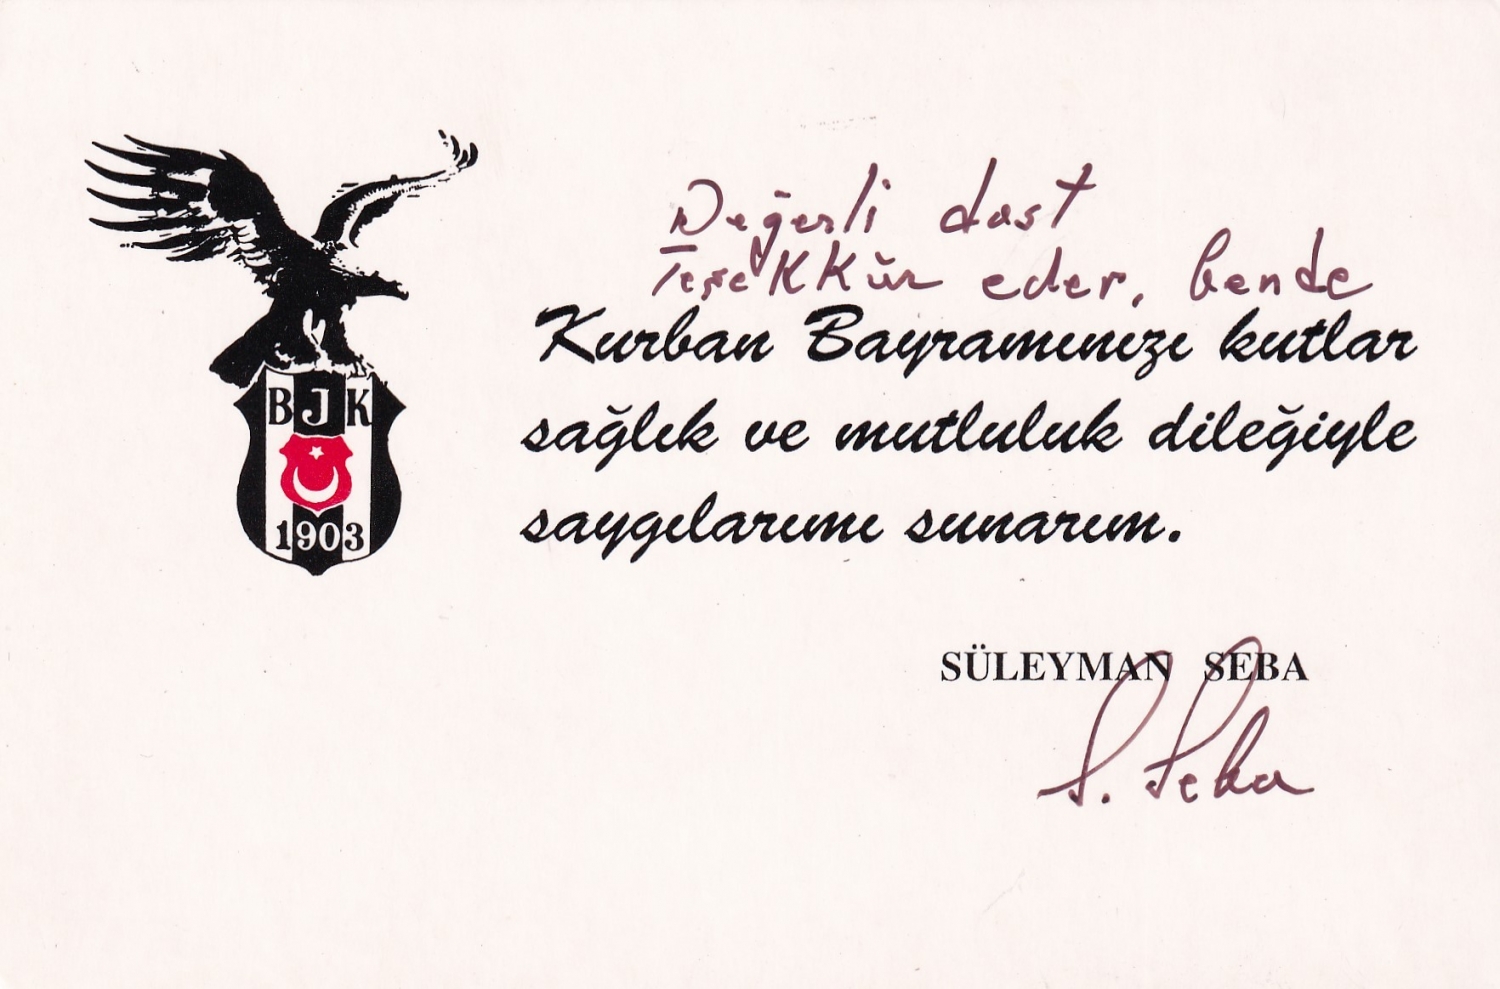 Değerli dost
Teşekkür eder, bende
Kurban Bayramınızı kutlar
sağlık ve mutluluk dileğiyle
saygılarımı sunarım.
BJK
1903
SÜLEYMAN SEBA
S. Seba